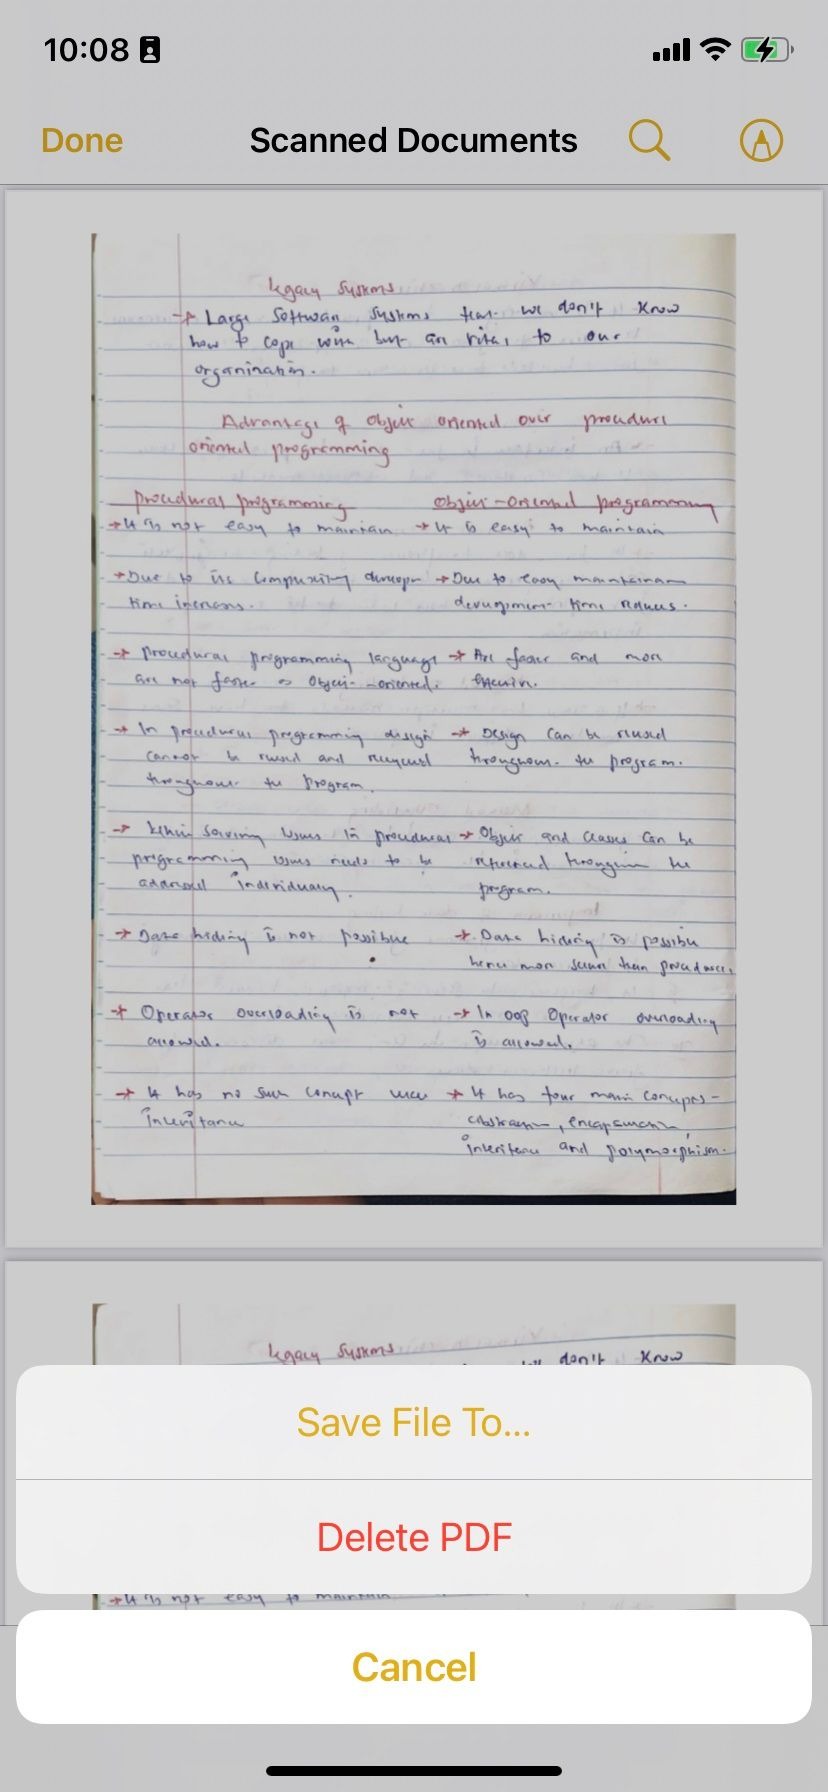 10:08
Done Scanned Documents
Legacy Systems
→ Large Software Systems that we don't know
how to cope with but are vital to our
organization.
Advantage of Object oriented over procedure
oriented programming
Procedural programming Object-oriented programming
→ It is not easy to maintain → It is easy to maintain
→ Due to its complexity develop → Due to easy maintainance
time increases. development time reduces.
→ Procedural programming language → Are faster and more
are not faster as object-oriented. efficient.
→ In procedural programming design → Design can be reused
cannot be reused and recycled throughout the program.
throughout the program.
→ While solving issues in procedural → Object and classes can be
programming issues needs to be referenced throughout the
addressed individually. program.
→ Data hiding is not possible → Data hiding is possible
hence more secure than procedural.
→ Operator overloading is not → In oop operator overloading
allowed. is allowed.
→ It has no such concept like → It has four main concepts-
inheritance abstraction, encapsulation,
inheritance and polymorphism.
Legacy Systems
don't know
Save File To...
Delete PDF
→ It is not easy to maintain
Cancel